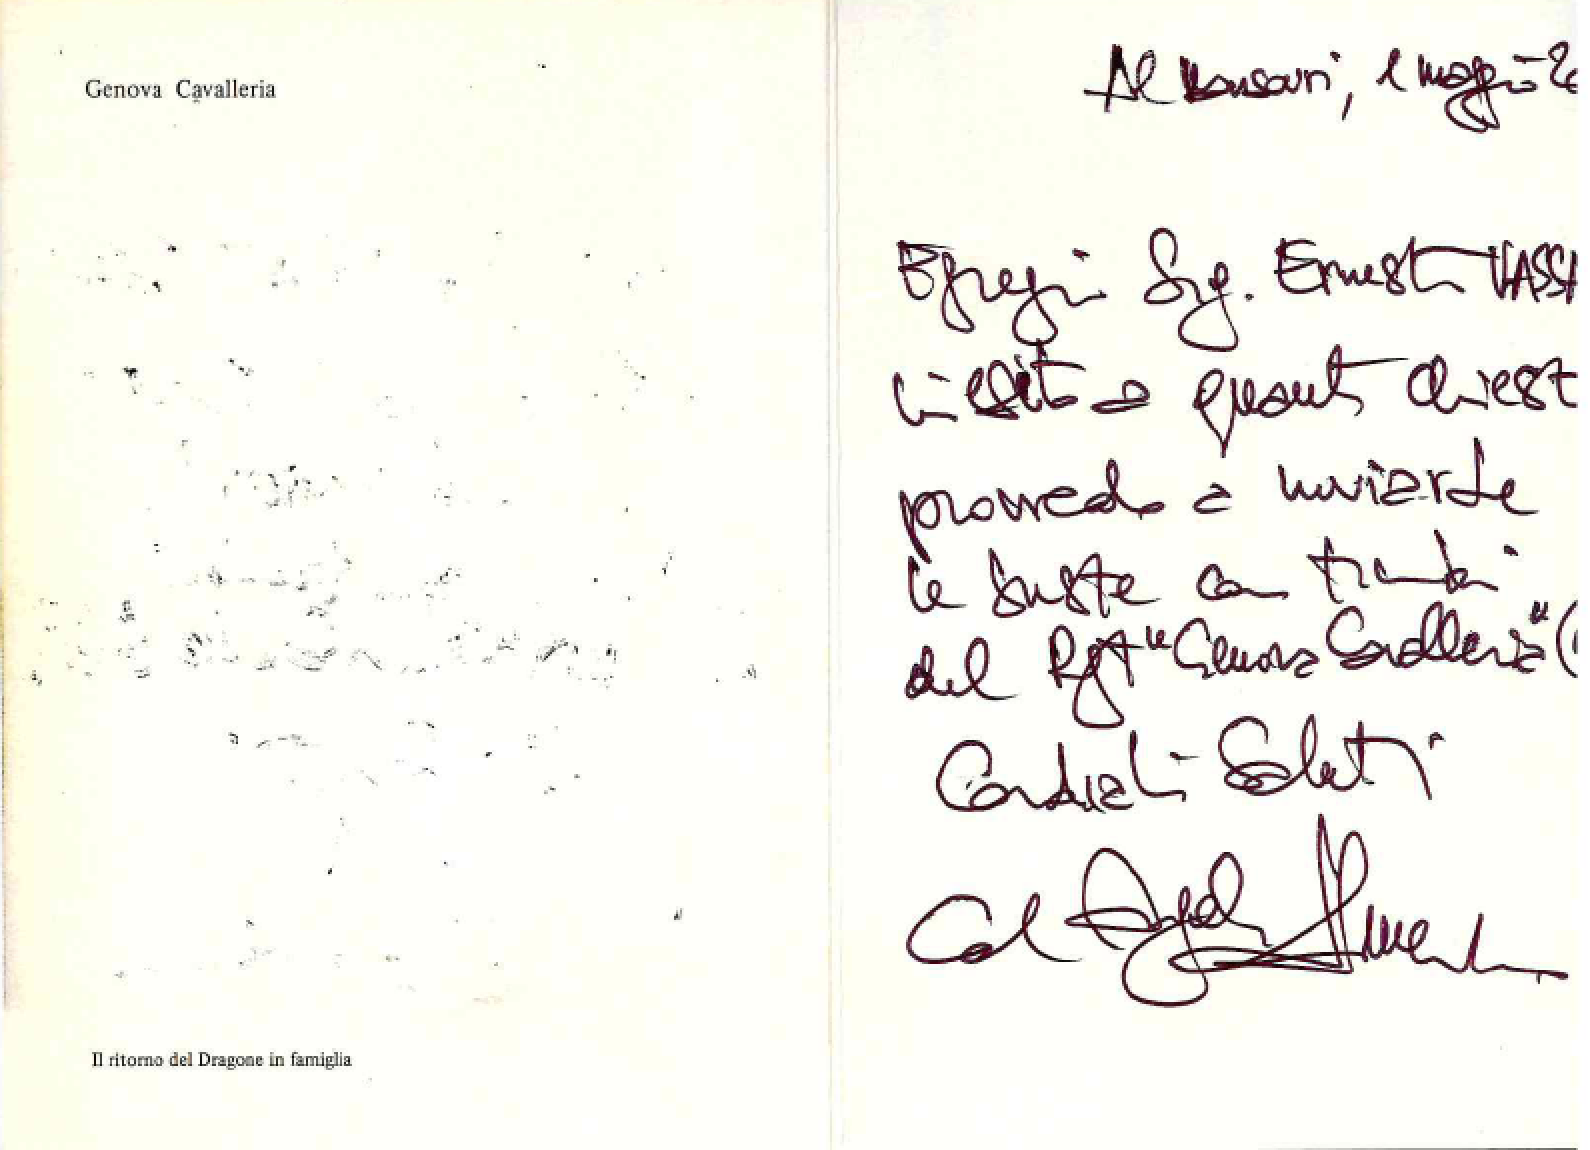 Genova Cavalleria
Il ritorno del Dragone in famiglia
Al Mansouri, 1 maggio
Egregio Sig. Ernesto VASSA
in esito a quanto chiest
provvedo a inviarle
le buste con timbri
del Rgt "Genova Cavalleria" (
Cordiali Saluti
Col Angelo